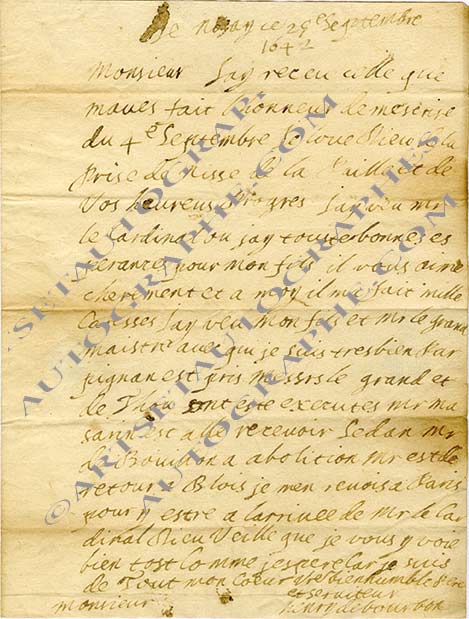 De Nosay ce 29e Septembre
1642
Monsieur Jay receu celle que
maves fait lhonneur de mescrise
du 4e Septembre Je loue Dieu de la
Prise de Nisse de la Paille et de
Vos heureus Progres Jay veu mr
le Cardinal ou jay toutes bonnes es
perances pour mon fils il vous aime
cherement et a moy il me fait mille
Caresses Jay veu mon fils et Mr le grand
maistre avec qui je suis tresbien Par
pignan est pris messrs le grand et
de Thou ont este executes Mr ma
sarin est alle recevoir Sedan Mr
de Bouillon a abolition Mr est de
retour a Blois je men revois a Paris
pour y estre a larrivee de Mr le Car
dinal Dieu Veille que je vous y voie
bien tost Comme jespere Car je suis
de Tout mon Coeur vre bien humble
et serviteur
Monsieur henry de bourbon
© ARTSETAUTOGRAPHES.COM
ARTSETAUTOGRAPHES.COM